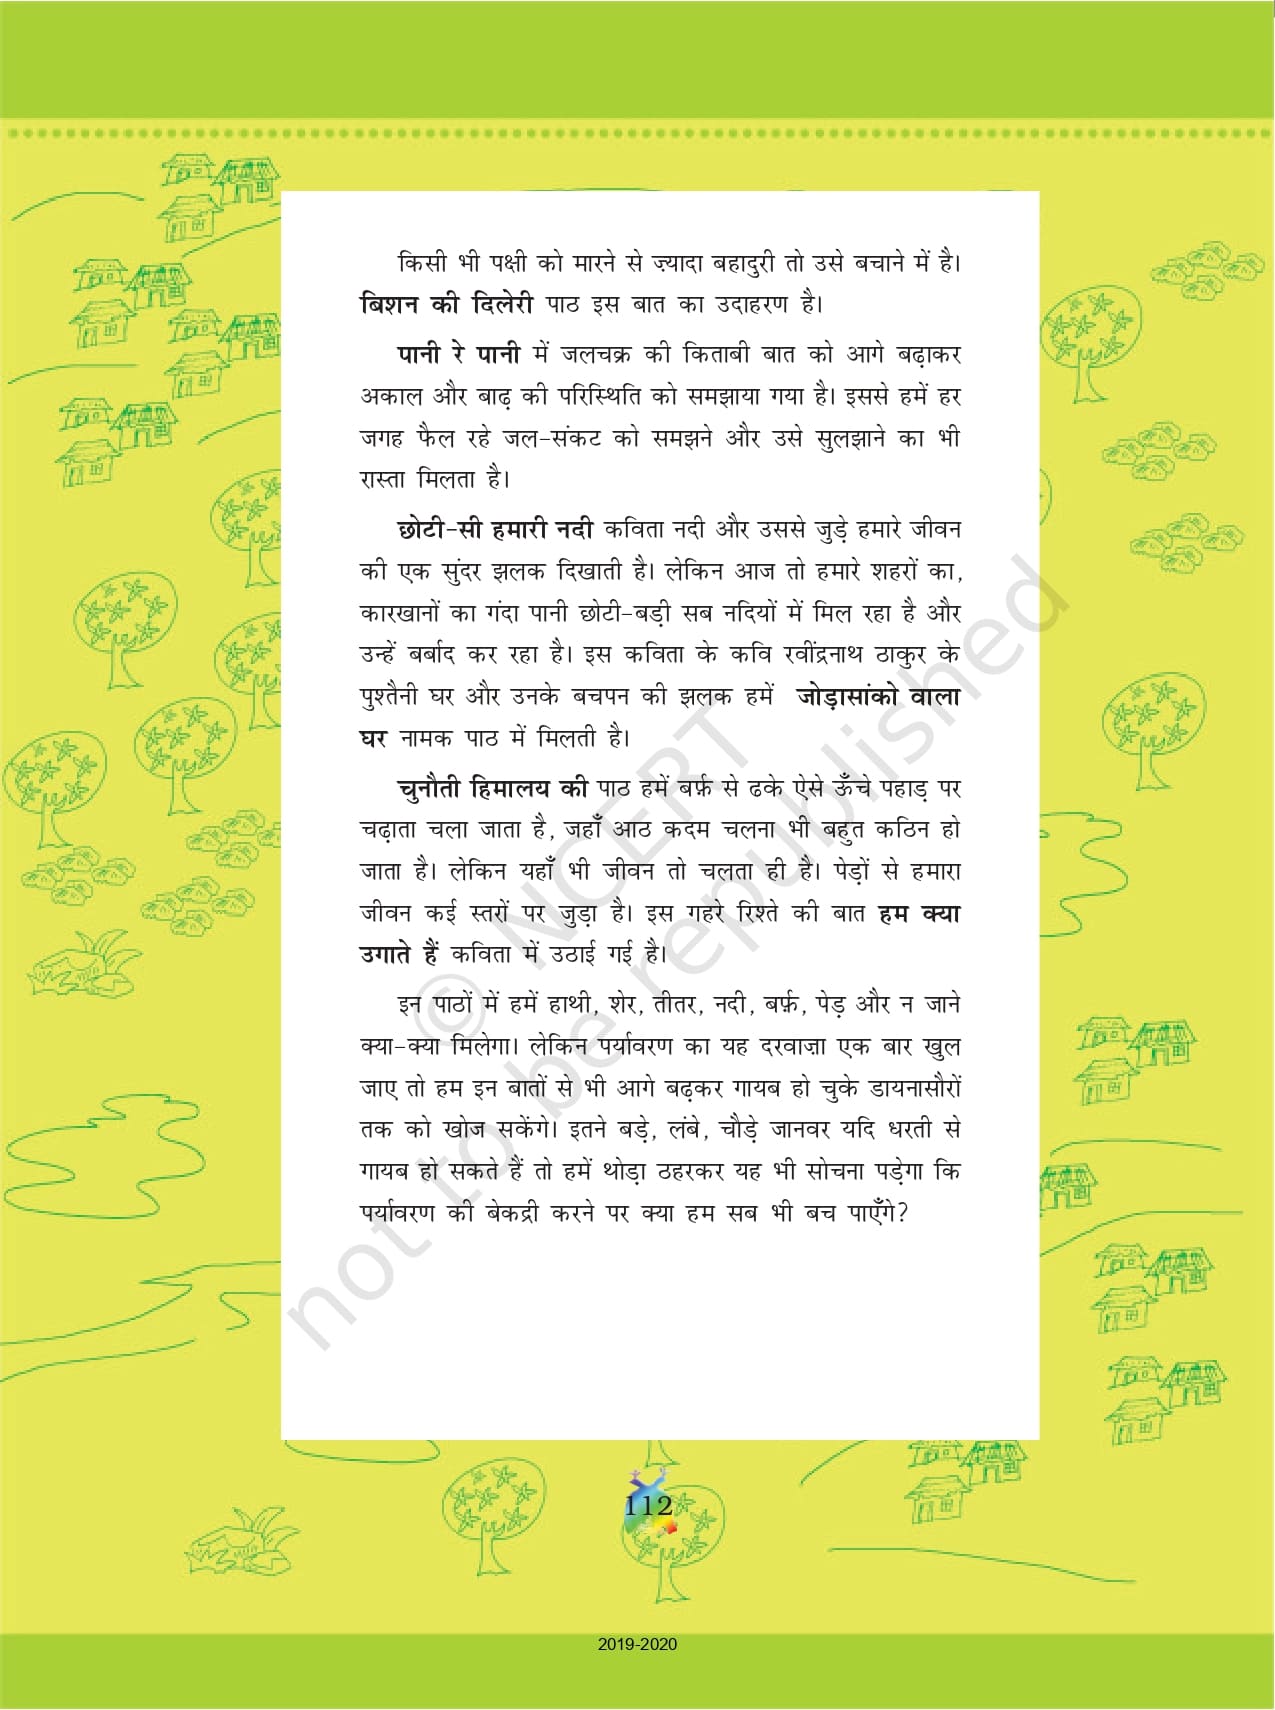 किसी भी पक्षी को मारने से ज़्यादा बहादुरी तो उसे बचाने में है।
बिशन की दिलेरी पाठ इस बात का उदाहरण है।
पानी रे पानी में जलचक्र की किताबी बात को आगे बढ़ाकर
अकाल और बाढ़ की परिस्थिति को समझाया गया है। इससे हमें हर
जगह फैल रहे जल-संकट को समझने और उसे सुलझाने का भी
रास्ता मिलता है।
छोटी-सी हमारी नदी कविता नदी और उससे जुड़े हमारे जीवन
की एक सुंदर झलक दिखाती है। लेकिन आज तो हमारे शहरों का,
कारखानों का गंदा पानी छोटी-बड़ी सब नदियों में मिल रहा है और
उन्हें बर्बाद कर रहा है। इस कविता के कवि रवींद्रनाथ ठाकुर के
पुश्तैनी घर और उनके बचपन की झलक हमें जोड़ासांको वाला
घर नामक पाठ में मिलती है।
चुनौती हिमालय की पाठ हमें बर्फ़ से ढके ऐसे ऊँचे पहाड़ पर
चढ़ाता चला जाता है, जहाँ आठ कदम चलना भी बहुत कठिन हो
जाता है। लेकिन यहाँ भी जीवन तो चलता ही है। पेड़ों से हमारा
जीवन कई स्तरों पर जुड़ा है। इस गहरे रिश्ते की बात हम क्या
उगाते हैं कविता में उठाई गई है।
इन पाठों में हमें हाथी, शेर, तीतर, नदी, बर्फ़, पेड़ और न जाने
क्या-क्या मिलेगा। लेकिन पर्यावरण का यह दरवाज़ा एक बार खुल
जाए तो हम इन बातों से भी आगे बढ़कर गायब हो चुके डायनासौरों
तक को खोज सकेंगे। इतने बड़े, लंबे, चौड़े जानवर यदि धरती से
गायब हो सकते हैं तो हमें थोड़ा ठहरकर यह भी सोचना पड़ेगा कि
पर्यावरण की बेकद्री करने पर क्या हम सब भी बच पाएँगे?
© NCERT
not to be republished
112
2019-2020